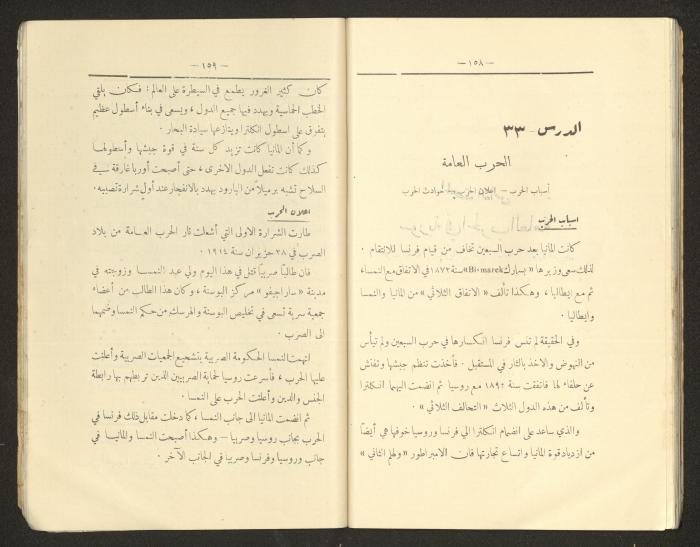 — ١٥٨ —
الدرس - ٣٣
الحرب العامة
أسباب الحرب — اعلان الحرب — حوادث الحرب
اسباب الحرب
كانت المانيا بعد حرب السبعين تخاف من قيام فرنسا للانتقام .
لذلك سعى وزيرها « بسمارك Bismarek» سنة ١٨٧٢ في الاتفاق مع النمساء
ثم مع ايطاليا ، وهكذا تألف « الاتفاق الثلاثي » من المانيا والنمسا
وايطاليا .
وفي الحقيقة لم تنس فرنسا انكسارها في حرب السبعين ولم تيأس
من النهوض والاخذ بالثار في المستقبل . فأخذت تنظم جيشها وتفتش
عن حلفاء لها فاتفقت سنة ١٨٩٢ مع روسيا ثم انضمت اليهما انكلترا
وتألف من هذه الدول الثلاث « التحالف الثلاثي » .
والذي ساعد على انضمام انكلترا الى فرنسا وروسيا خوفها هي أيضاً
من ازدياد قوة المانيا واتساع تجارتها فان الامبراطور « ولهلم الثاني »
— ١٥٩ —
كان كثير الغرور يطمع في السيطرة على العالم : فكان يلقي
الخطب الحماسية ويهدد فيها جميع الدول ، ويسعى في بناء أسطول عظيم
يتفرق على اسطول انكلترا وينازعها سيادة البحار .
وكما أن المانيا كانت تزيد كل سنة في قوة جيشها وأسطولها
كذلك كانت تفعل الدول الاخرى ، حتى أصبحت أوربا غارقة في
السلاح تشبه برميلاً من البارود يهدد بالانفجار عند أول شرارة تصيبه .
اعلان الحرب
طارت الشرارة الاولى التي أشعلت نار الحرب العامة من بلاد
الصرب في ٢٨ حزيران سنة ١٩١٤ .
فان طالباً صربياً قتل في هذا اليوم ولي عهد النمسا وزوجته في
مدينة « ساراجيفو » مركز البوسنة ، وكان هذا الطالب من أعضاء
جمعية سرية تسعى في تخليص البوسنة والهرسك من حكم النمسا وضمهما
الى الصرب .
اتهمت النمسا الحكومة الصربية بتشجيع الجمعيات الصربية وأعلنت
عليها الحرب ، فأسرعت روسيا لحماية الصربيين الذين تربطهم بها رابطة
الجنس والدين وأعلنت الحرب على النمسا .
ثم انضمت المانيا الى جانب النمسا ، كما دخلت مقابل ذلك فرنسا في
الحرب بجانب روسيا وصربيا — وهكذا أصبحت النمسا والمانيا في
جانب وروسيا وفرنسا وصربيا في الجانب الآخر .